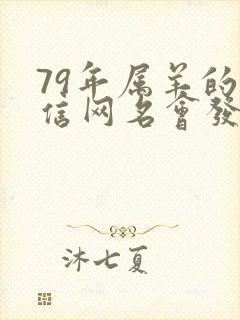 79年属羊的
信网名會發
沐七夏